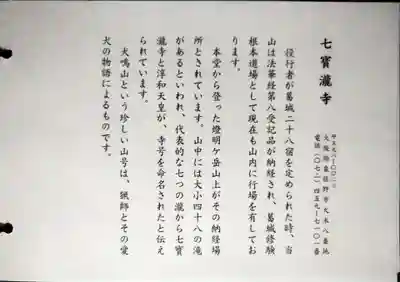 七寳瀧寺
〒五九八−〇〇二三
大阪府泉佐野市大木八番地
電話(〇七二)四五九−七一〇一番
役行者が葛城二十八宿を定められた時、当
山は法華経第八受記品が納経され、葛城修験
根本道場として現在も山内に行場を有してお
ります。
本堂から登った燈明ケ岳山上がその納経場
所とされています。山中には大小四十八の滝
があるといわれ、代表的な七つの瀧から七寳
瀧寺と淳和天皇が、寺号を命名されたと伝え
られています。
犬鳴山という珍しい山号は、猟師とその愛
犬の物語によるものです。